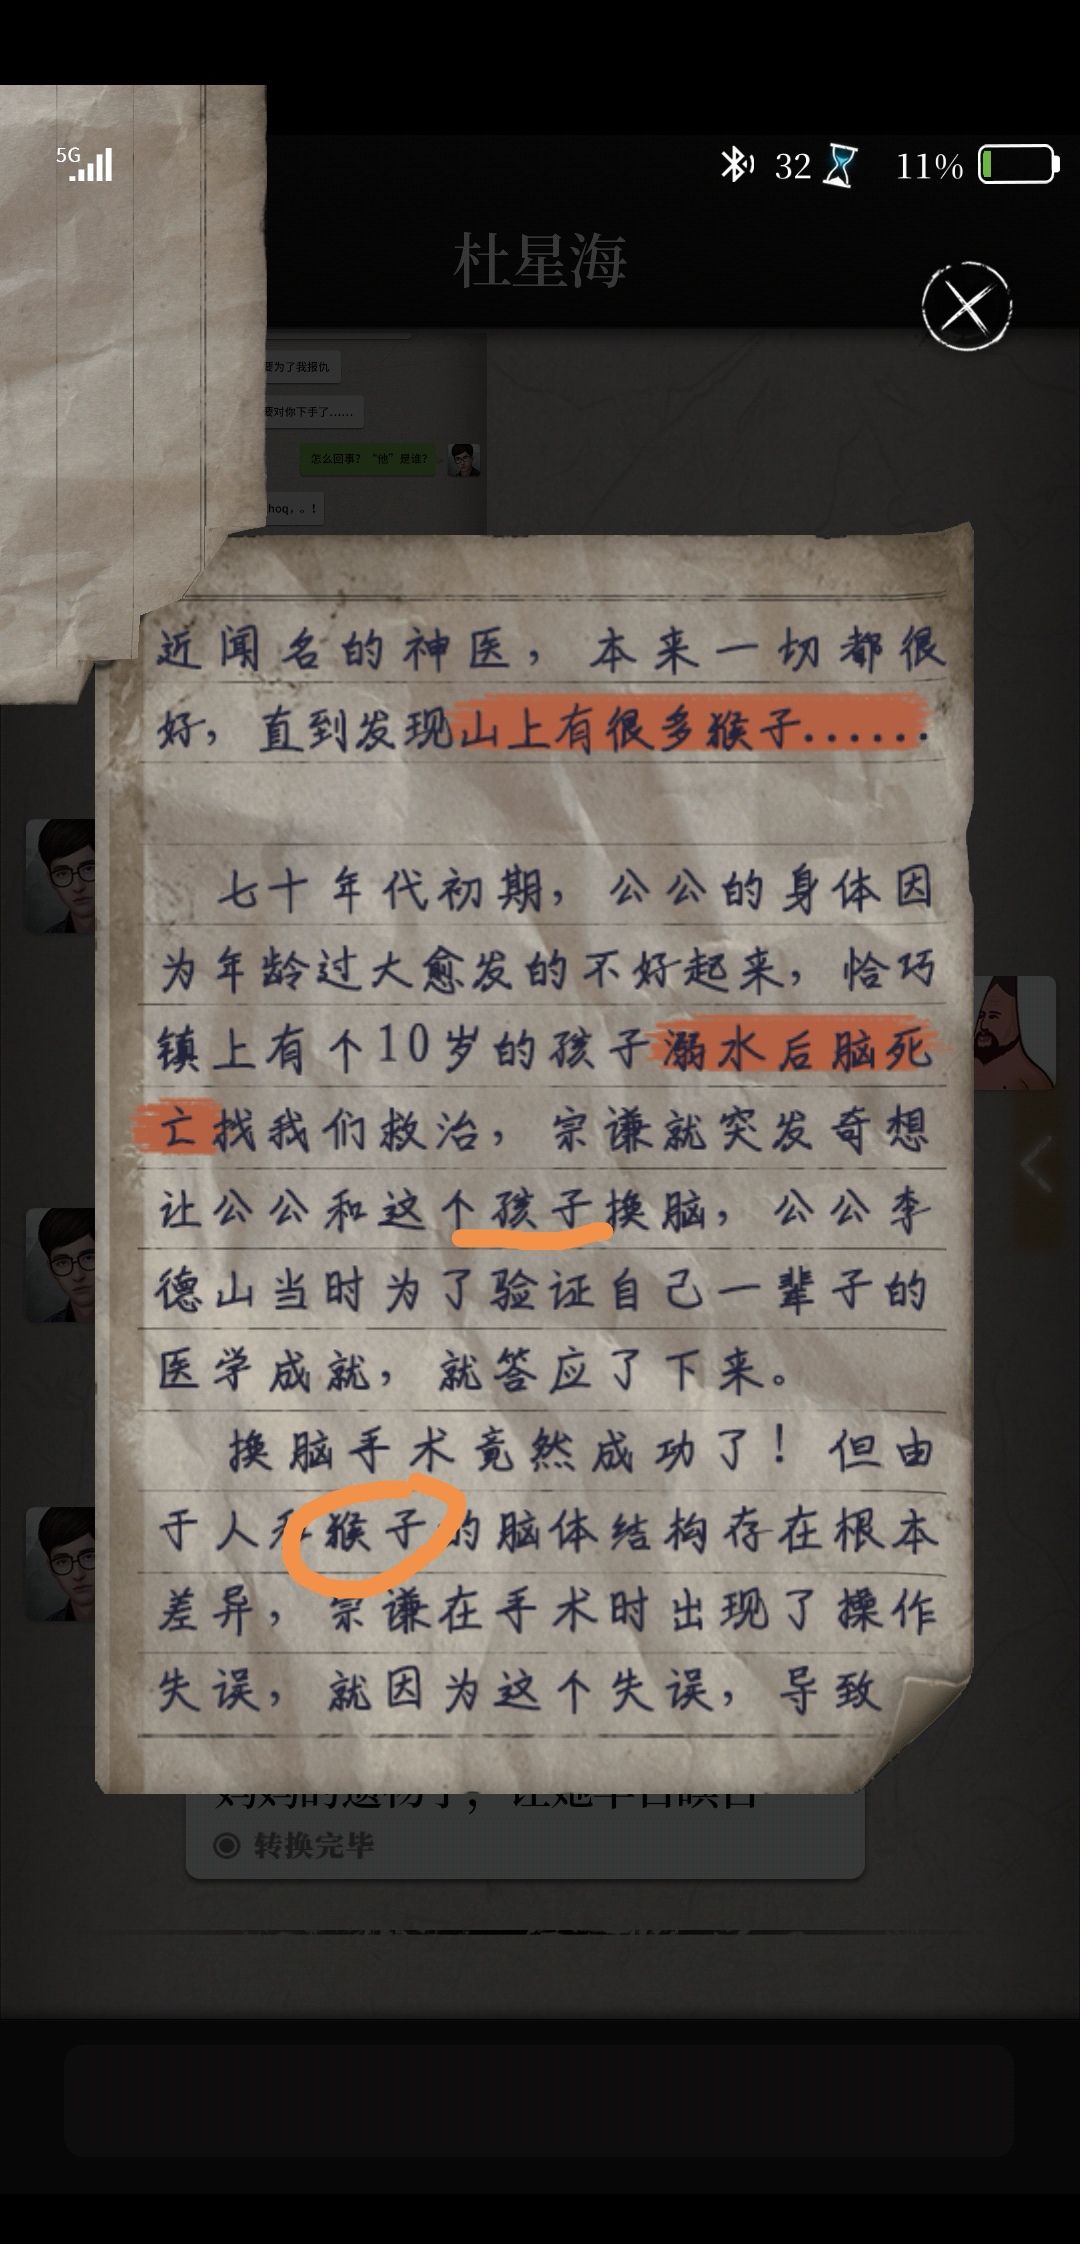 5G
32
11%
杜星海
要为了我报仇
要对你下手了……
怎么回事？“他”是谁？
hoq，。！
近闻名的神医，本来一切都很
好，直到发现山上有很多猴子......
七十年代初期，公公的身体因
为年龄过大愈发的不好起来，恰巧
镇上有个10岁的孩子溺水后脑死
亡找我们救治，宗谦就突发奇想
让公公和这个孩子换脑，公公李
德山当时为了验证自己一辈子的
医学成就，就答应了下来。
换脑手术竟然成功了！但由
于人和猴子的脑体结构存在根本
差异，宗谦在手术时出现了操作
失误，就因为这个失误，导致
转换完毕